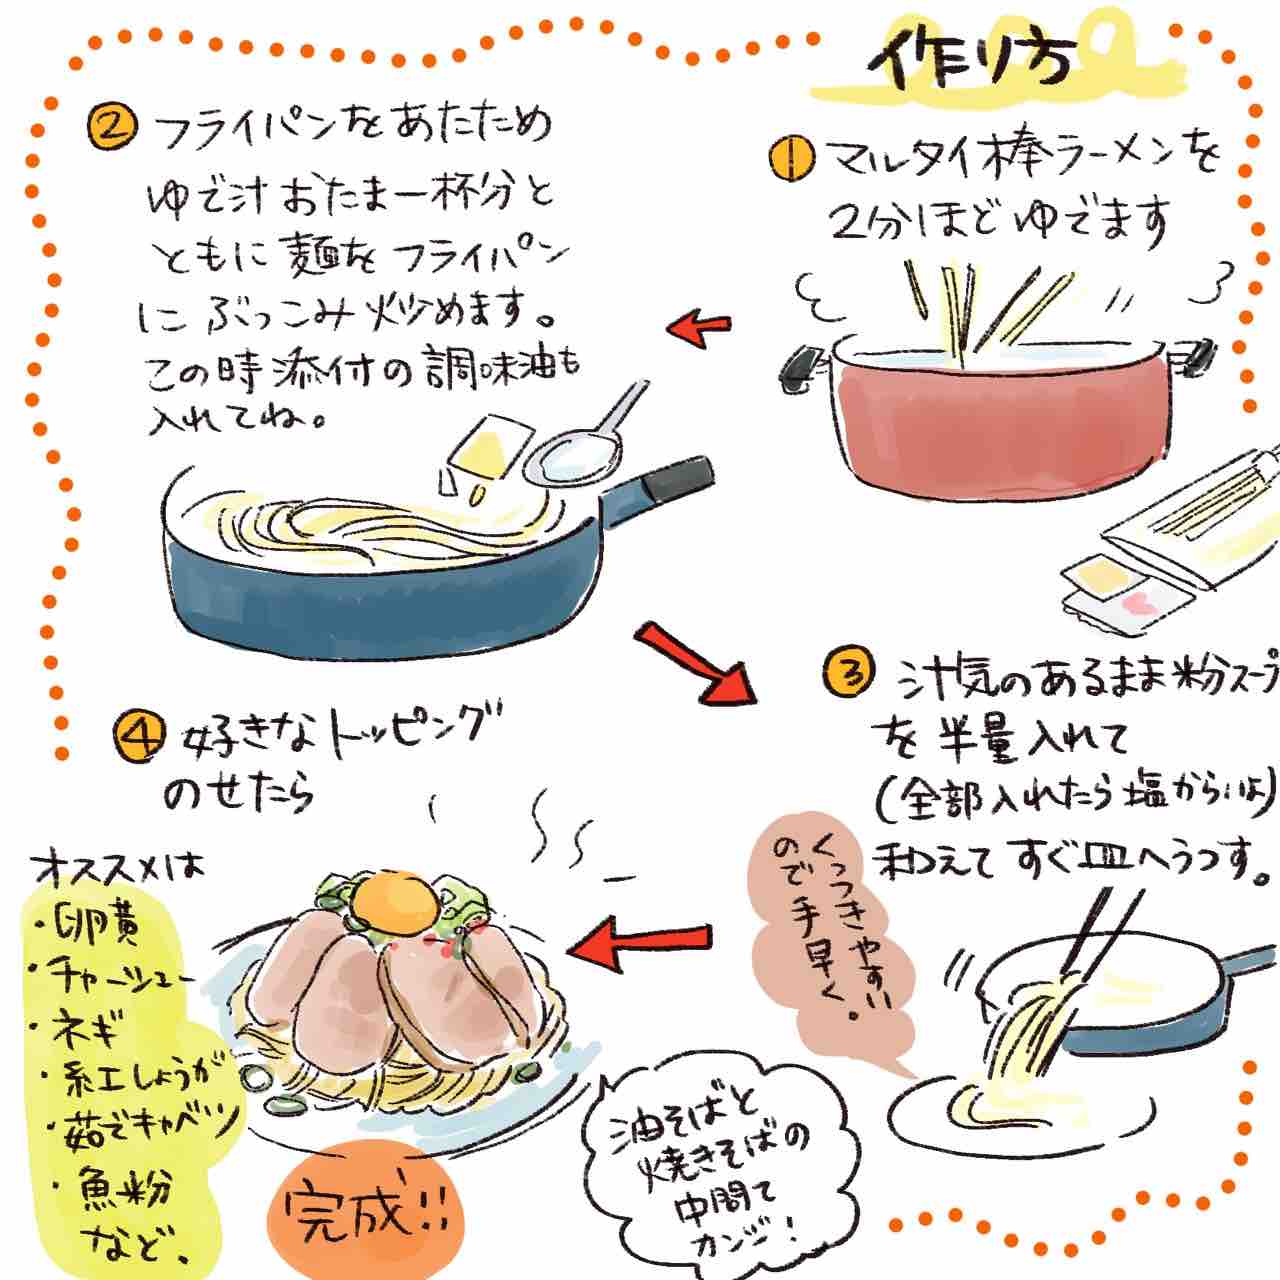 作り方
① マルタイ棒ラーメンを
2分ほどゆでます
② フライパンをあたため
ゆで汁おたま一杯分と
ともに麺をフライパン
にぶっこみ炒めます。
この時添付の調味油も
入れてね。
③ 汁気のあるまま粉スープ
を半量入れて
(全部入れたら塩からいよ)
和えてすぐ皿へうつす。
くっつきやすい
ので手早く。
④ 好きなトッピング
のせたら
オススメは
・卵黄
・チャーシュー
・ネギ
・紅しょうが
・茹でキャベツ
・魚粉
など。
完成!!
油そばと
焼きそばの
中間て
カンジ!